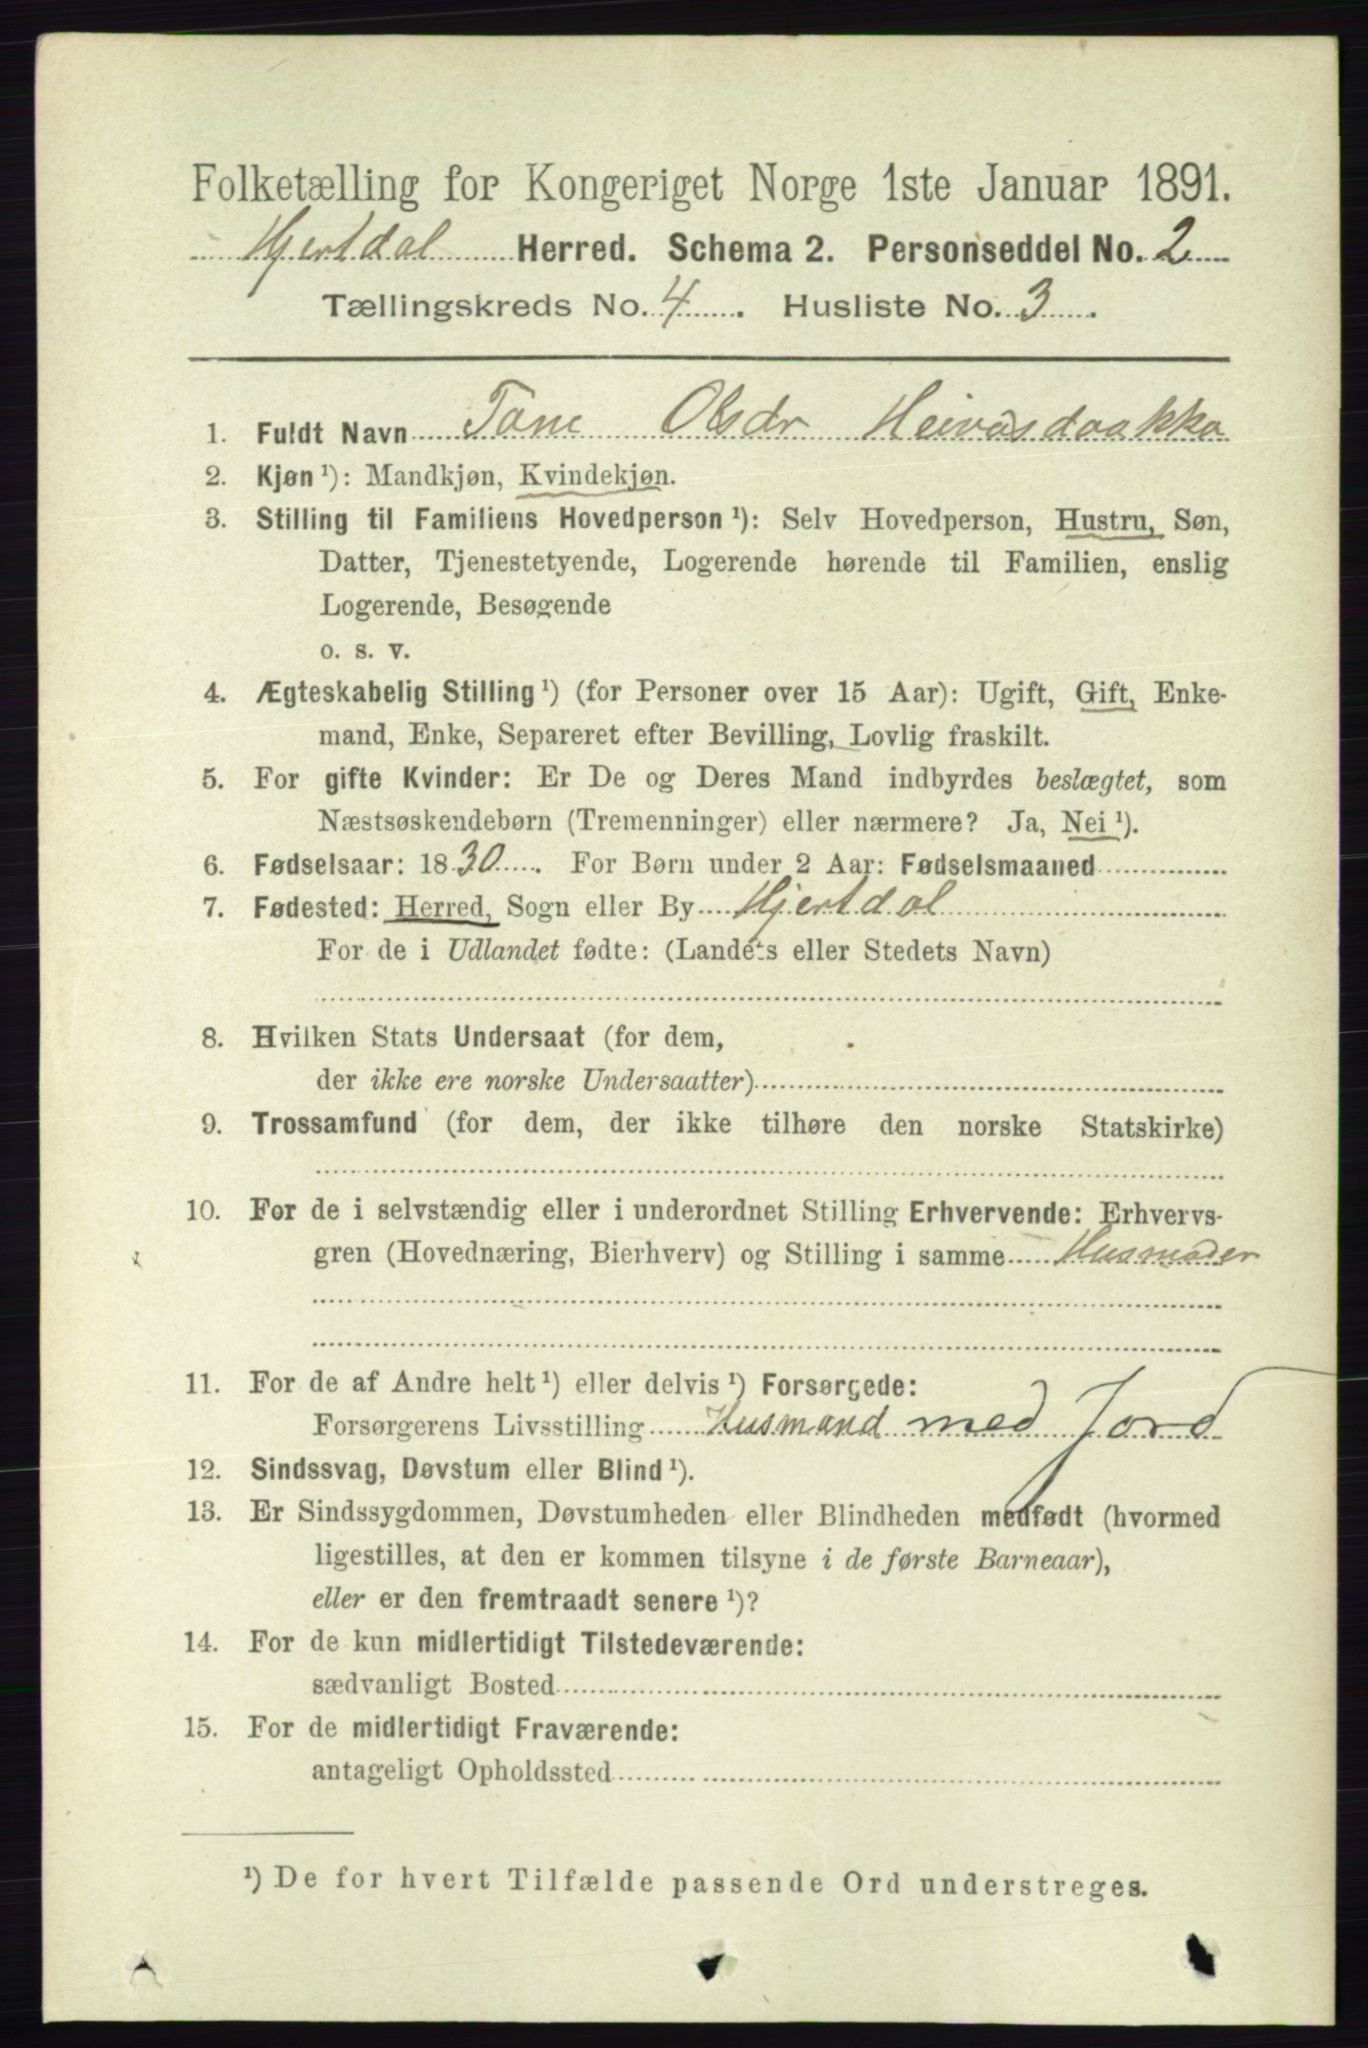 Folketælling for Kongeriget Norge 1ste Januar 1891.
Hjertdal Herred. Schema 2. Personseddel No. 2
Tællingskreds No. 4. Husliste No. 3.
1. Fuldt Navn Tone Olsdr Heivasdaakka
2. Kjøn ¹): Mandkjøn, Kvindekjøn.
3. Stilling til Familiens Hovedperson ¹): Selv Hovedperson, Hustru, Søn,
Datter, Tjenestetyende, Logerende hørende til Familien, enslig
Logerende, Besøgende
o. s. v.
4. Ægteskabelig Stilling ¹) (for Personer over 15 Aar): Ugift, Gift, Enke-
mand, Enke, Separeret efter Bevilling, Lovlig fraskilt.
5. For gifte Kvinder: Er De og Deres Mand indbyrdes beslægtet, som
Næstsøskendebørn (Tremenninger) eller nærmere? Ja, Nei ¹).
6. Fødselsaar: 1830. For Børn under 2 Aar: Fødselsmaaned
7. Fødested: Herred, Sogn eller By Hjertdal
For de i Udlandet fødte: (Landets eller Stedets Navn)
8. Hvilken Stats Undersaat (for dem,
der ikke ere norske Undersaatter)
9. Trossamfund (for dem, der ikke tilhøre den norske Statskirke)
10. For de i selvstændig eller i underordnet Stilling Erhvervende: Erhvervs-
gren (Hovednæring, Bierhverv) og Stilling i samme Husmoder
11. For de af Andre helt ¹) eller delvis ¹) Forsørgede:
Forsørgerens Livsstilling Husmand med Jord
12. Sindssvag, Døvstum eller Blind ¹).
13. Er Sindssygdommen, Døvstumheden eller Blindheden medfødt (hvormed
ligestilles, at den er kommen tilsyne i de første Barneaar),
eller er den fremtraadt senere ¹)?
14. For de kun midlertidigt Tilstedeværende:
sædvanligt Bosted
15. For de midlertidigt Fraværende:
antageligt Opholdssted
¹) De for hvert Tilfælde passende Ord understreges.